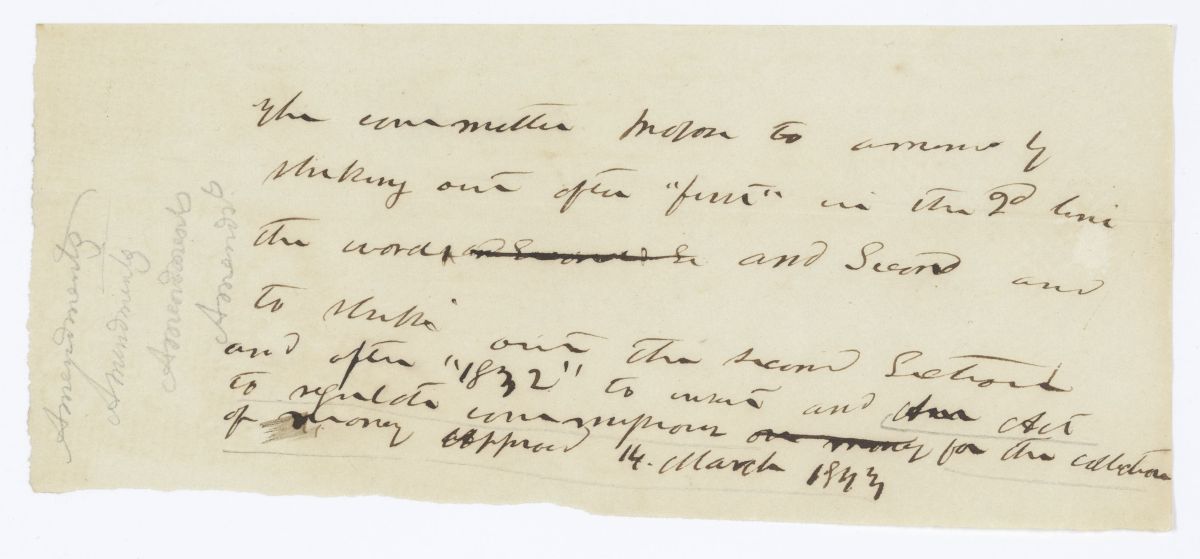 The committee propose to amend by
striking out after "first" in the 2d line
the words and Second Se and Second and
to strike out the second Section
and after "1832" to insert and An Act
to regulate commissions on money for the collection
of money Approved 14. March 1843
Amendments